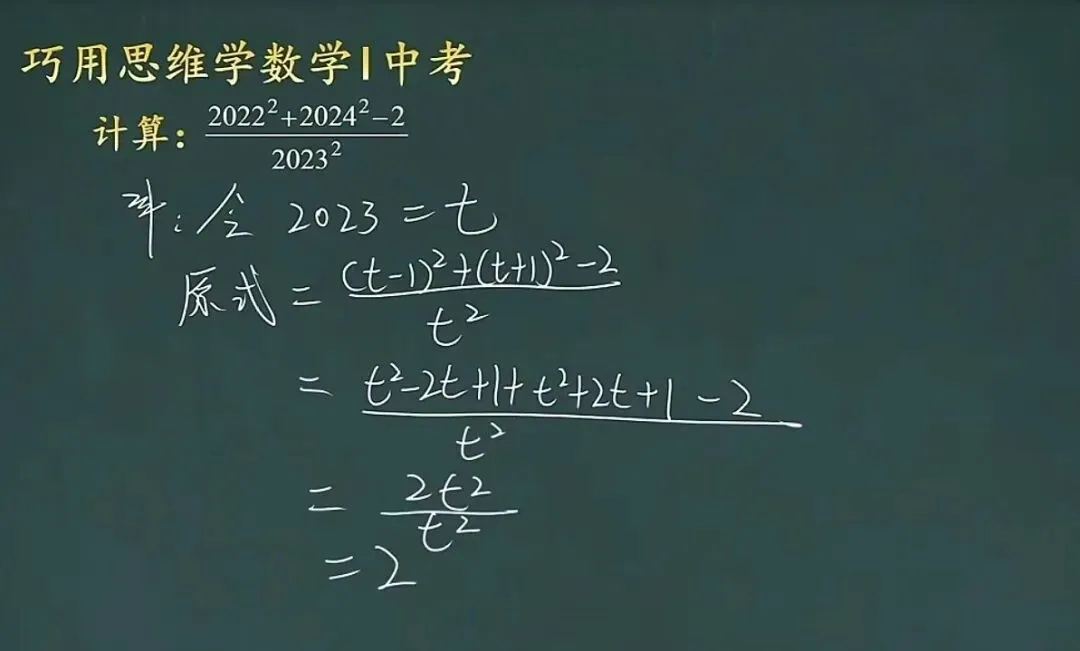 巧用思维学数学|中考
计算：(2022²+2024²-2)/2023²
解：令 2023=t
原式=((t-1)²+(t+1)²-2)/t²
=(t²-2t+1+t²+2t+1-2)/t²
=2t²/t²
=2